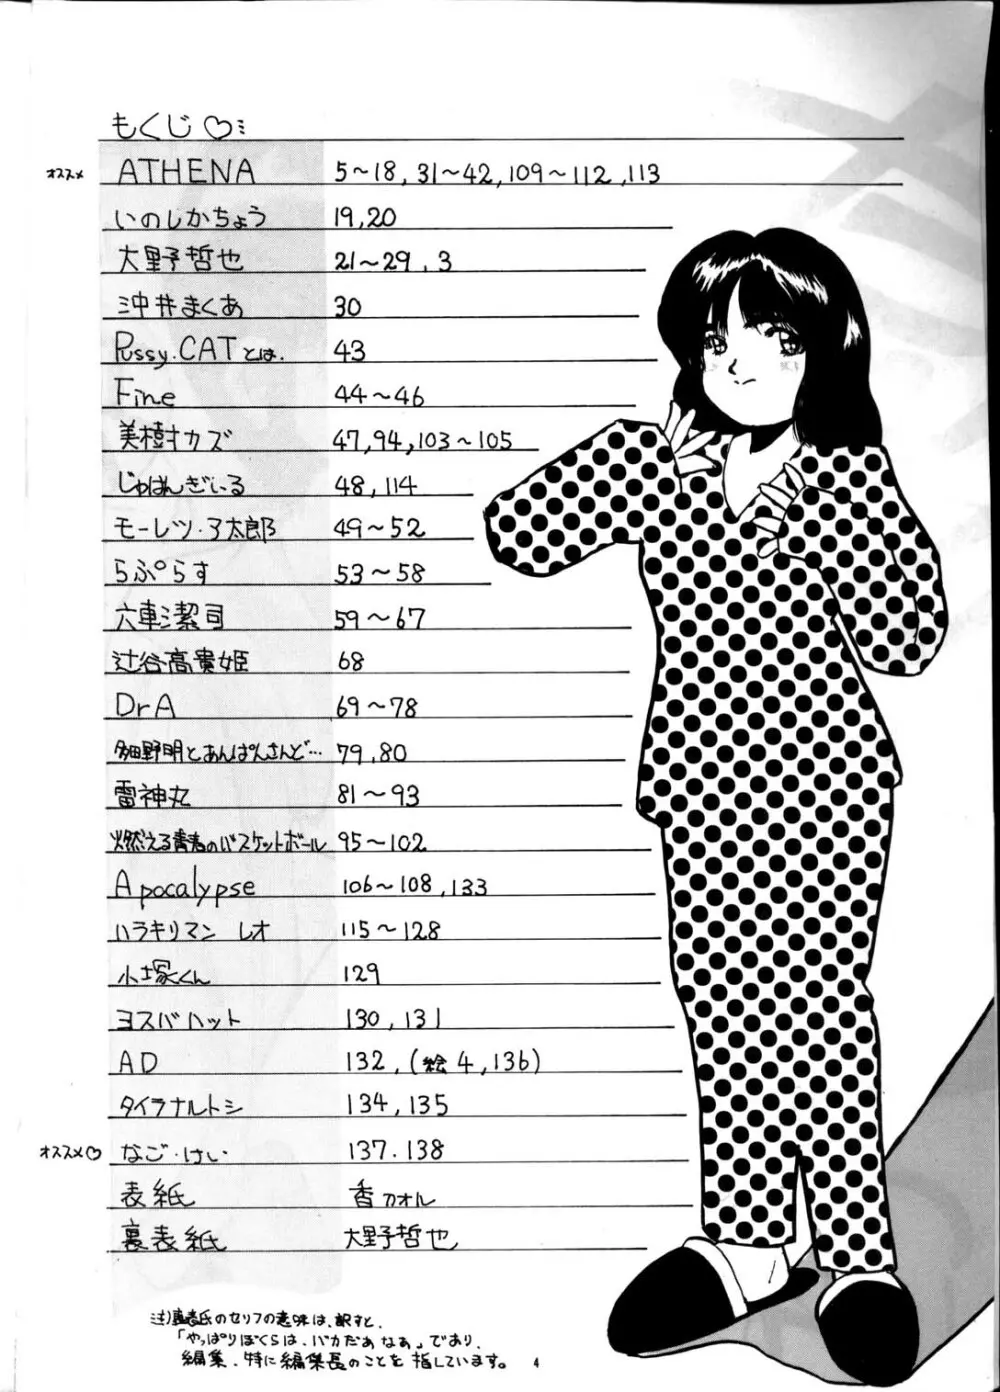 もくじ♡ミ
オススメ ATHENA 5〜18, 31〜42, 109〜112, 113
いのしかちょう 19, 20
大野哲也 21〜29, 3
沖井まくあ 30
Pussy.CATとは. 43
Fine 44〜46
美樹カズ 47, 94, 103〜105
じゅはんぎいる 48, 114
モーレツ・ア太郎 49〜52
らぷらす 53〜58
六車潔司 59〜67
辻谷高貴姫 68
DrA 69〜78
多田野明とあんぱんさんど… 79, 80
雷神丸 81〜93
燃える青春のバスケットボール 95〜102
Apocalypse 106〜108, 133
ハラキリマン レオ 115〜128
小塚くん 129
ヨスバハット 130, 131
AD 132, (絵4, 136)
タイラナルトシ 134, 135
オススメ♡ なご・けい 137. 138
表紙 香カオル
裏表紙 大野哲也
注)裏表氏のセリフの意味は、訳すと、
「やっぱりぼくらは、バカだあなあ」であり、
編集、特に編集長のことを指しています。 4